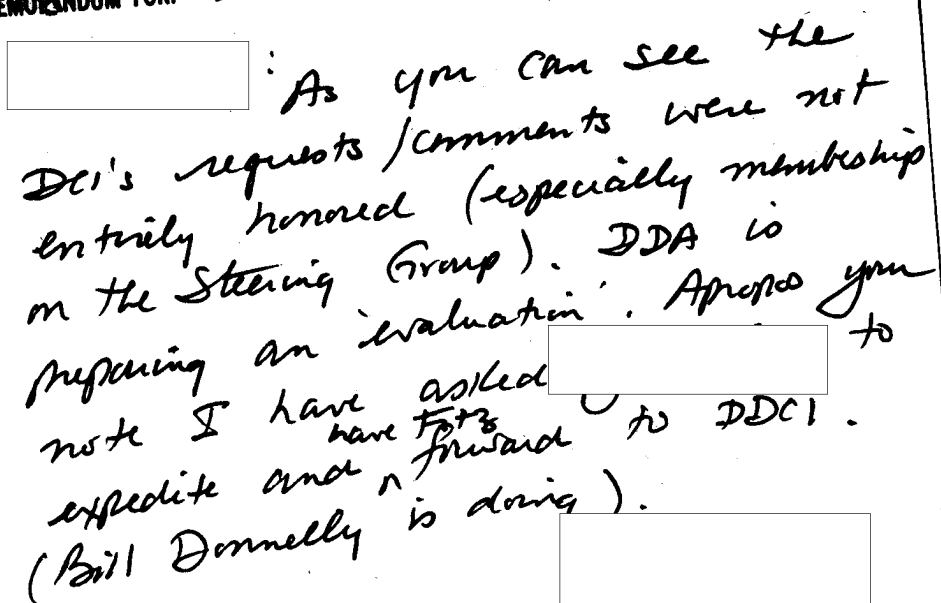 MEMORANDUM FOR:
: As you can see the
DCI's requests/comments were not
entirely honored (especially membeship
on the Steering Group). DDA is
preparing an 'evaluation'. Apropos your
note I have asked to
have
expedite and ^ forward to DDCI.
(Bill Donnelly is doing).